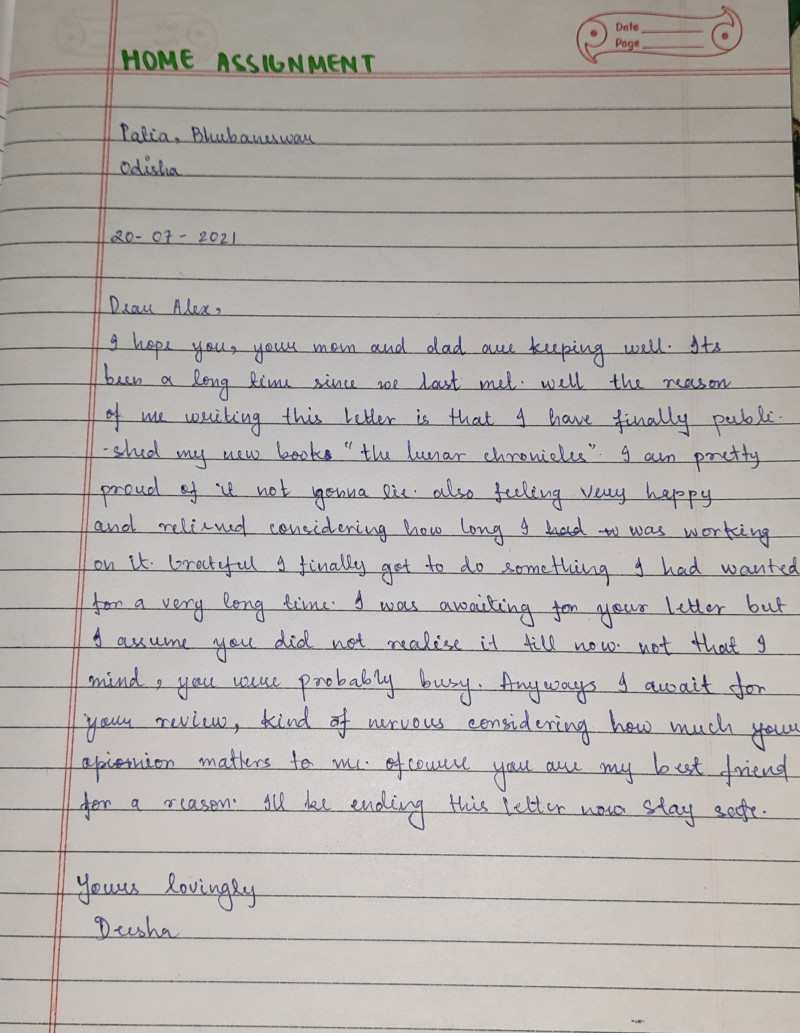 Date
Page
HOME ASSIGNMENT
Patia, Bhubaneswar
Odisha
20-07-2021
Dear Alex,
I hope you, your mom and dad are keeping well. Its
been a long time since we last met. well the reason
of me writing this letter is that I have finally publi-
-shed my new books "the lunar chronicles". I am pretty
proud of it not gonna lie. also feeling very happy
and relieved considering how long I had to was working
on it. Grateful I finally got to do something I had wanted
for a very long time. I was awaiting for your letter but
I assume you did not realise it till now. not that I
mind, you were probably busy. Anyways I await for
your review, kind of nervous considering how much your
opionion matters to me. ofcourse you are my best friend
for a reason. Ill be ending this letter now stay safe.
Yours lovingly
Deesha